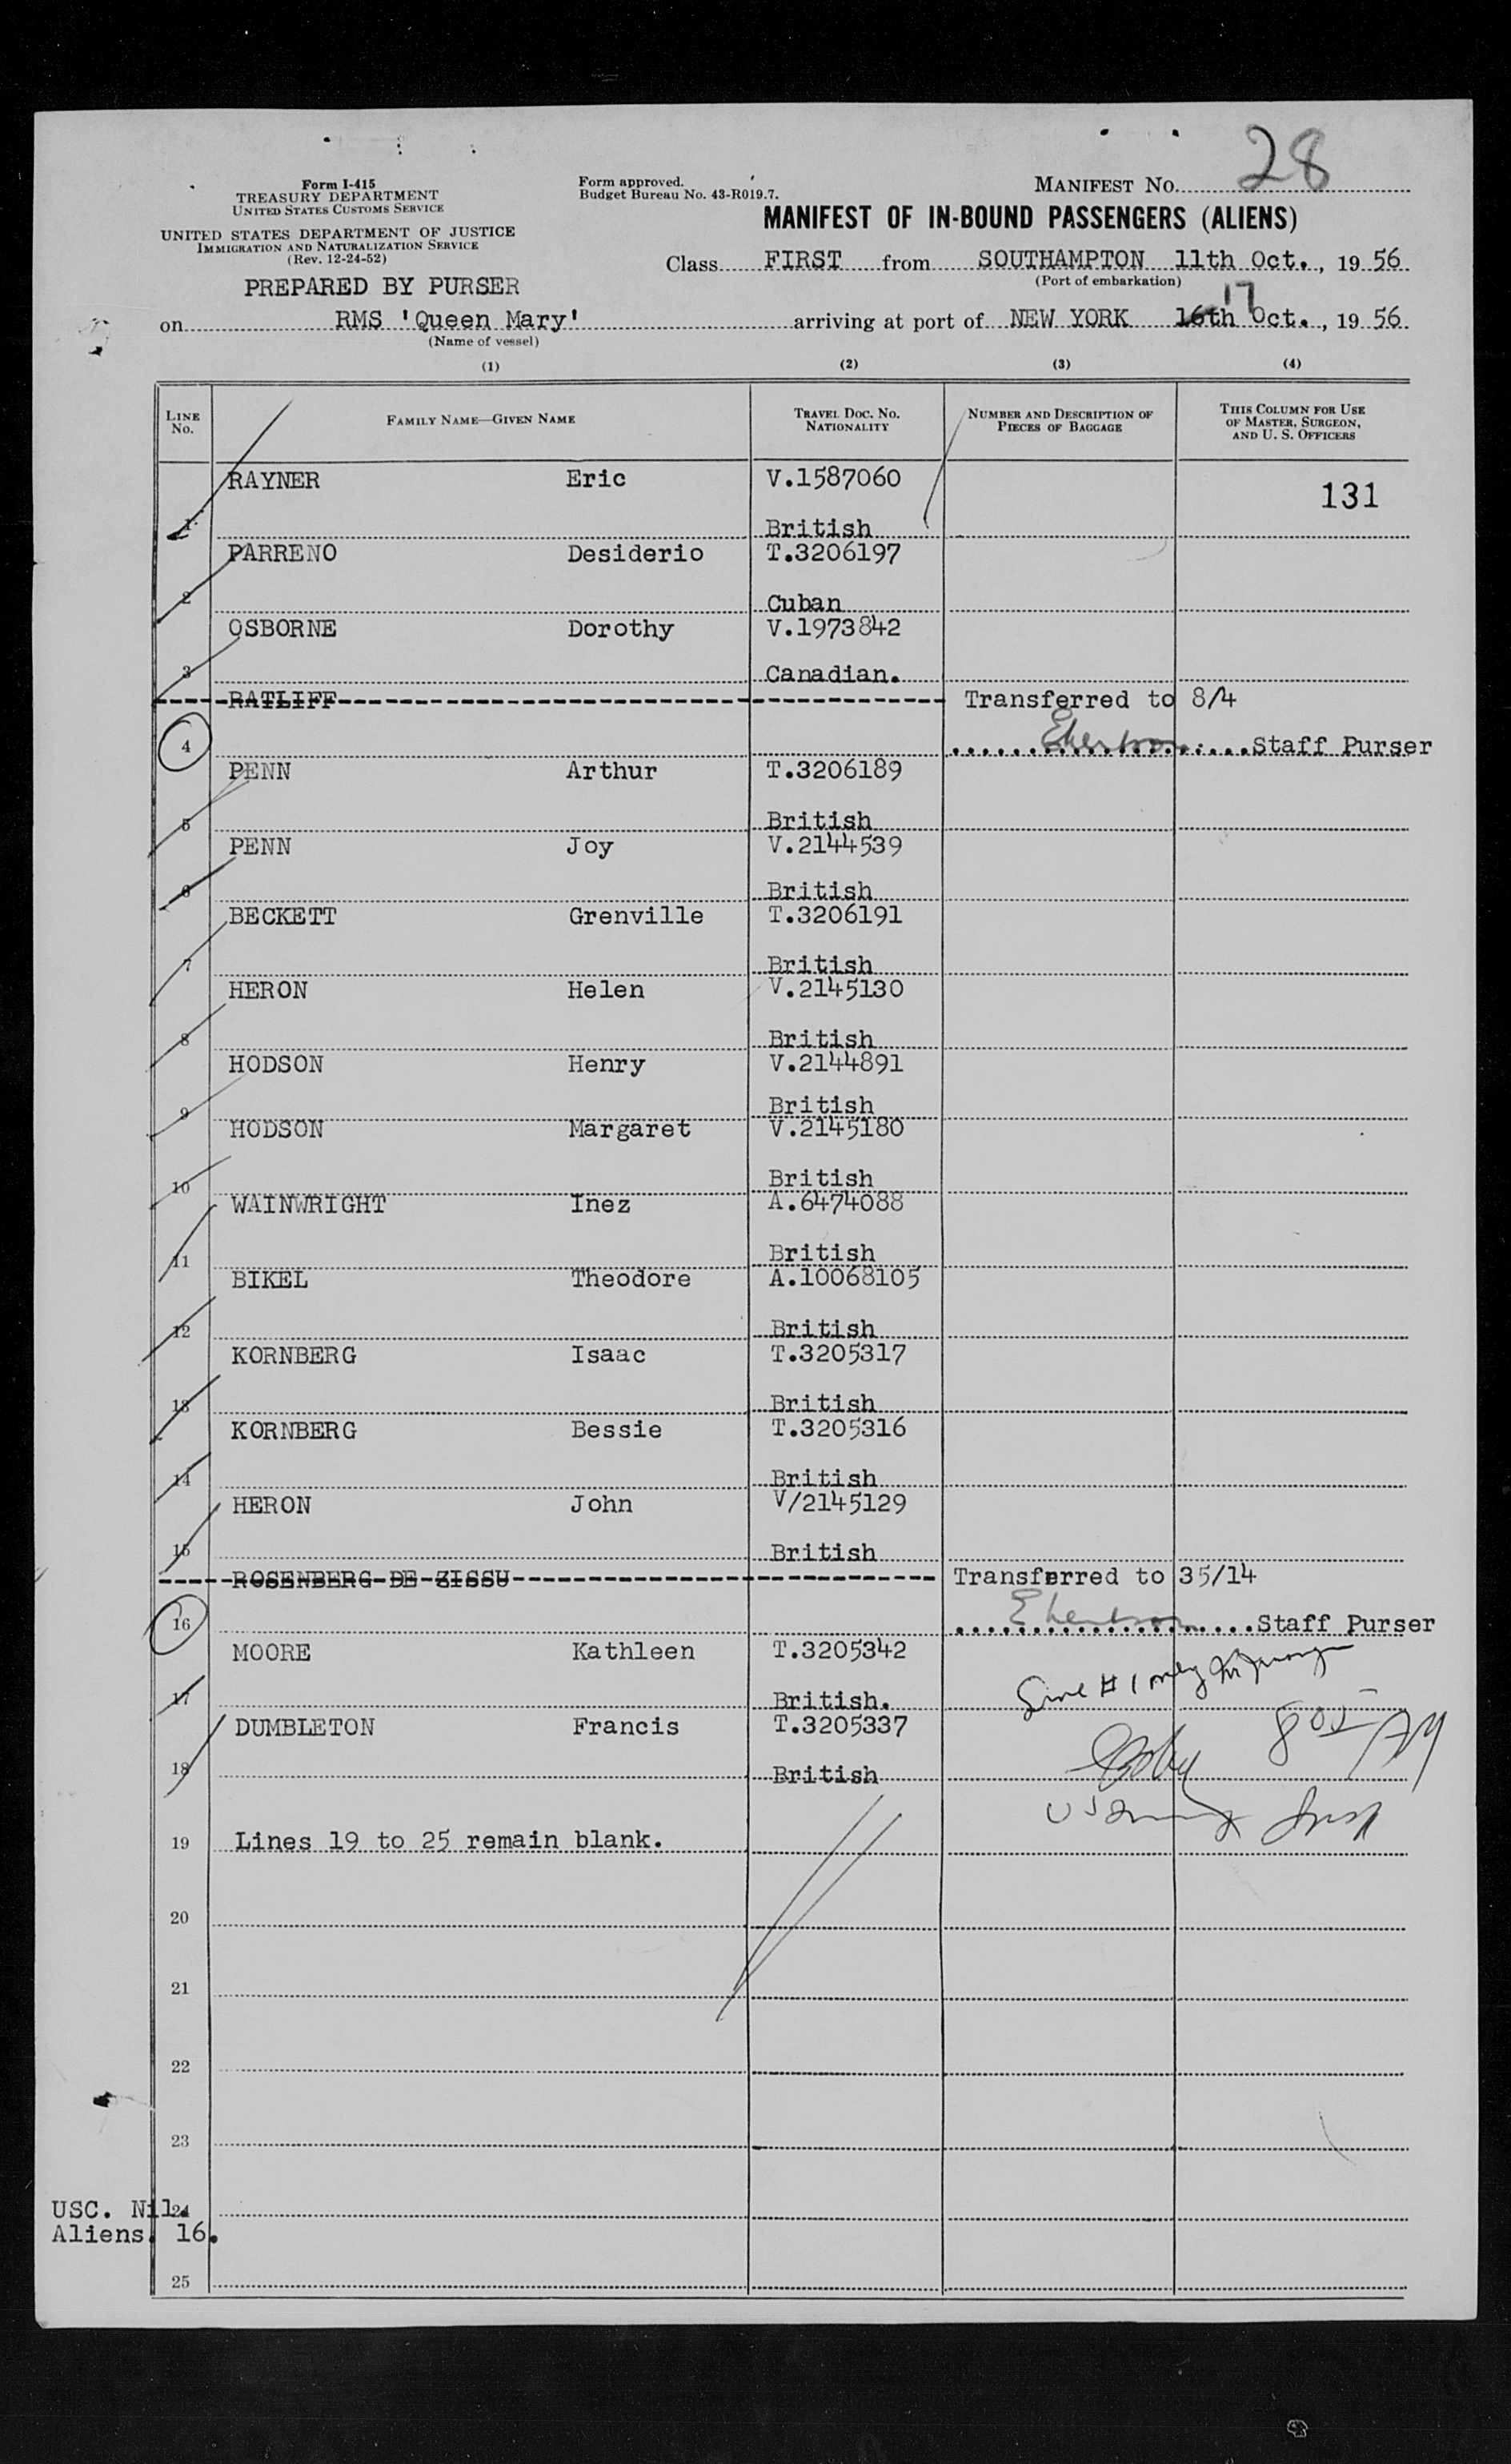 28
Form I-415
TREASURY DEPARTMENT
UNITED STATES CUSTOMS SERVICE
UNITED STATES DEPARTMENT OF JUSTICE
IMMIGRATION AND NATURALIZATION SERVICE
(Rev. 12-24-52)
PREPARED BY PURSER
Form approved.
Budget Bureau No. 43-R019.7.
MANIFEST NO.
MANIFEST OF IN-BOUND PASSENGERS (ALIENS)
Class FIRST from SOUTHAMPTON 11th Oct., 19 56
(Port of embarkation)
17
on RMS 'Queen Mary' arriving at port of NEW YORK 16th Oct., 19 56
(Name of vessel)
(1) (2) (3) (4)
LINE NO. FAMILY NAME—GIVEN NAME TRAVEL DOC. NO. NATIONALITY NUMBER AND DESCRIPTION OF PIECES OF BAGGAGE THIS COLUMN FOR USE OF MASTER, SURGEON, AND U. S. OFFICERS
RAYNER Eric V.1587060
131
1 British
PARRENO Desiderio T.3206197
2 Cuban
OSBORNE Dorothy V.1973842
3 Canadian.
RATLIFF Transferred to 8/4
4 Staff Purser
PENN Arthur T.3206189
5 British
PENN Joy V.2144539
6 British
BECKETT Grenville T.3206191
7 British
HERON Helen V.2145130
8 British
HODSON Henry V.2144891
9 British
HODSON Margaret V.2145180
10 British
WAINWRIGHT Inez A.6474088
11 British
BIKEL Theodore A.10068105
12 British
KORNBERG Isaac T.3205317
13 British
KORNBERG Bessie T.3205316
14 British
HERON John V/2145129
15 British
ROSENBERG DE ZISSU Transferred to 35/14
16 Staff Purser
MOORE Kathleen T.3205342
17 British.
DUMBLETON Francis T.3205337
18 British
19 Lines 19 to 25 remain blank.
20
21
22
23
USC. Nil.
24
Aliens. 16.
25